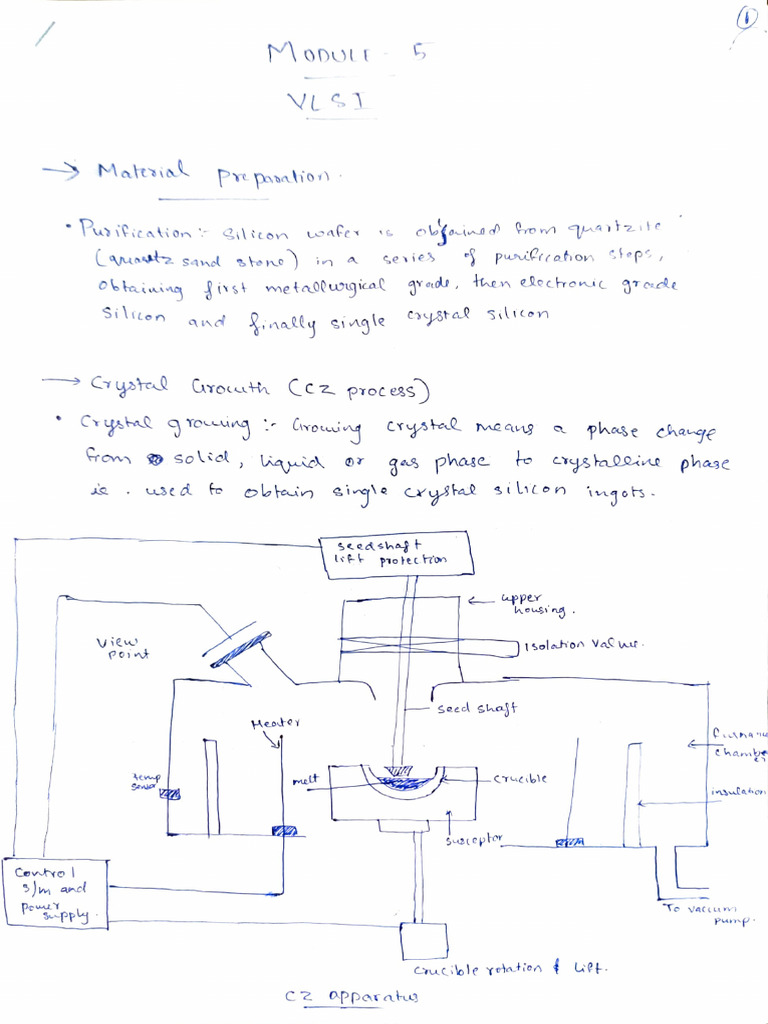 1
MODULE - 5
VLSI
→ Material preparation.
• Purification :- Silicon wafer is obtained from quartzite
(quartz sand stone) in a series of purification steps,
obtaining first metallurgical grade, then electronic grade
silicon and finally single crystal silicon
→ Crystal Growth (CZ process)
• Crystal growing :- Growing crystal means a phase change
from solid, liquid or gas phase to crystalline phase
ie. used to obtain single crystal silicon ingots.
seedshaft
lift protection
upper
housing.
isolation valve.
view
point
seed shaft
Heater
furnance
chamber
temp
sensor
melt
crucible
insulation
susceptor
control
s/m and
power
supply.
To vaccum
pump.
crucible rotation & lift.
CZ apparatus